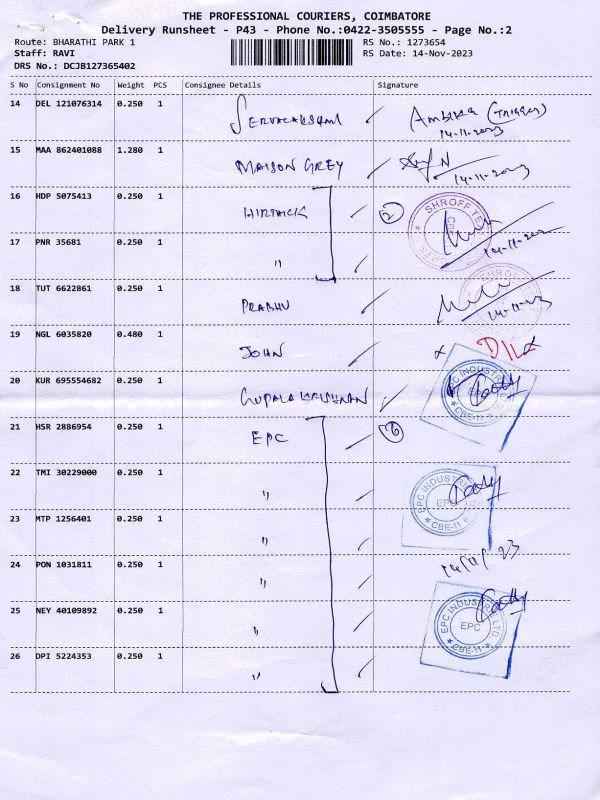 THE PROFESSIONAL COURIERS, COIMBATORE
Delivery Runsheet - P43 - Phone No.:0422-3505555 - Page No.:2
Route: BHARATHI PARK 1 RS No.: 1273654
Staff: RAVI RS Date: 14-Nov-2023
DRS No.: DCJB127365402
S No Consignment No Weight PCS Consignee Details Signature
14 DEL 121076314 0.250 1 Ambika (Trigger)
14-11-2023
15 MAA 862401088 1.280 1 MAISON GREY
14-11-2023
16 HDP 5075413 0.250 1 HIRTHICK 2 SHROFF
17 PNR 35681 0.250 1 " 14-11-202
18 TUT 6622861 0.250 1 PRABHU SHRO
14-11-23
19 NGL 6035820 0.480 1 JOHN
20 KUR 695554682 0.250 1 GOPALAKRISHNAN EPC INDUSTRI EPC CBE-11
21 HSR 2886954 0.250 1 EPC 6
22 TMI 30229000 0.250 1 " EPC INDUSTRI EPC CBE-11
23 MTP 1256401 0.250 1 "
24 PON 1031811 0.250 1 " 14/11/23
25 NEY 40109892 0.250 1 " EPC INDUSTRI LTD EPC CBE-11
26 DPI 5224353 0.250 1 "